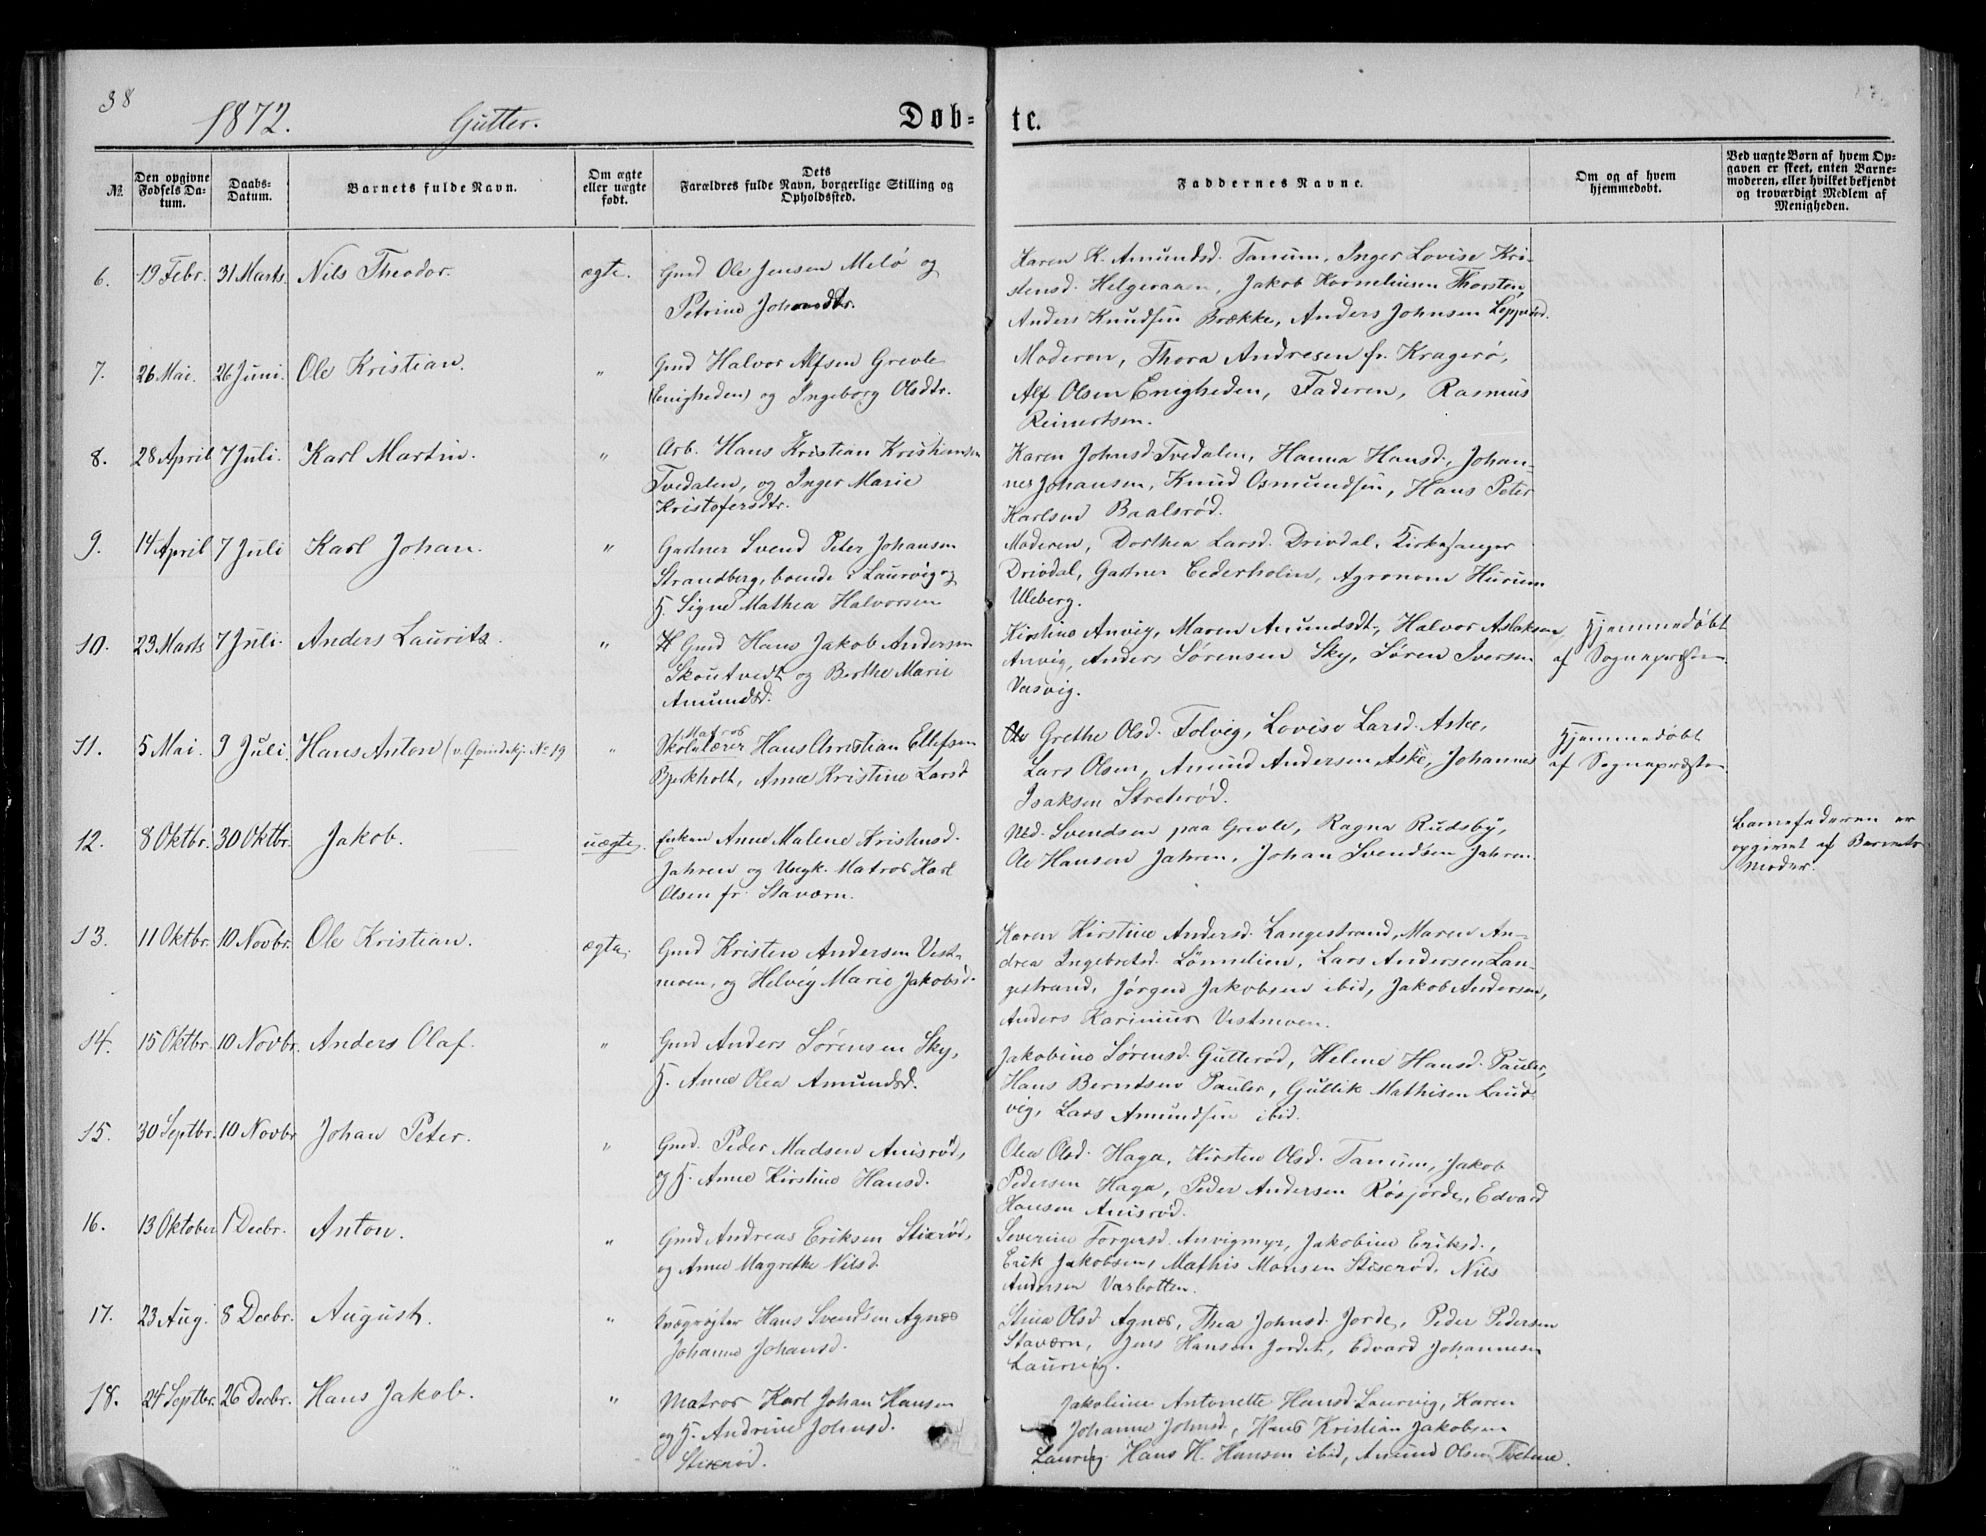 38
1872. Gutter. Døb- te.
№ Den opgivne Fødsels Datum. Daabs-Datum. Barnets fulde Navn. Om ægte eller uægte født. Dets Forældres fulde Navn, borgerlige Stilling og Opholdssted. Faddernes Navne. Om og af hvem hjemmedøbt. Ved uægte Børn af hvem Opgaven er skeet, enten Barnemoderen, eller hvilket bekjendt og troværdigt Medlem af Menigheden.
6. 19 Febr. 31 Marts. Nils Theodor. ægte. Gmd Ole Jensen Melø og
Petrine Johansdtr.
Karen K. Amundsd. Tanum, Inger Lovise Kri-
stensd. Helgeraaen, Jakob Korneliusen Thorsten,
Anders Knudsen Brække, Anders Johnsen
7. 26 Mai. 26 Juni. Ole Kristian. " Gmd Halvor Alfsen Grevle
(Enigheden) og Ingeborg Olsdtr.
Moderen, Thora Andresen fr. Kragerø,
Alf Olsen Enigheden, Faderen, Rasmus
Reinertsen.
8. 28 April 7 Juli. Karl Martin. " Arb. Hans Kristian Kristiansen
Tvedalen, og Inger Marie
Kristofersdtr.
Karen Johnsd. Tvedalen, Hanna Hansd., Johan-
nes Johansen, Knud Osmundsen, Hans Peter
Karlsen Baalsrød.
9. 14 April 7 Juli Karl Johan. " Gartner Svend Peter Johansen
Strandberg, boende i Laurvig og
H. Signe Mathea Halvorsen
Moderen, Dorthea Larsd. Drivdal, Kirkesanger
Drivdal, Gartner Cederholm, Agronom Hurum
Uleberg.
10. 23 Marts 7 Juli. Anders Laurits. " Gmd Hans Jakob Andersen
Skoutvedt og Berthe Marie
Amundsd.
Kirstine Anvig, Maren Amundsdt., Halvor Aslaksen
Anvig, Anders Sørensen Sky, Søren Iversen
Vasvig.
Hjemmedøbt
af Sognepræsten
11. 5 Mai. 9 Juli. Hans Anton " Matros
Skolelærer Hans Christian Ellefsen
Bjerkholt, Anne Kristine Larsd
Grethe Olsd. Folvig, Lovise Larsd. Aske,
Lars Olsen, Amund Andersen Aske, Johannes
Isaksen Streterød.
Hjemmedøbt
af Sognepræsten
12. 8 Oktbr. 30 Oktbr. Jakob. uægte. Enken Anne Malene Kristensd.
Jahren og Ungk. Matros Karl
Olsen fr. Staværn.
Ned. Svendsen paa Grevle, Ragna Rudsby,
Ole Hansen Jahren, Johan Svendsen Jahren.
Barnefaderen er
opgivet af Barnets
Moder.
13. 11 Oktbr. 10 Novbr. Ole Kristian. ægte. Gmd Kristen Andersen Vest-
moen, og Helvig Marie Jakobsd.
Karen Kirstine Andersd. Langestrand, Maren An-
drea Ingebretsd. Lønnelien, Lars Andersen Lan-
gestrand, Jørgen Jakobsen ibid, Jakob Andersen,
Anders Karinius Vestmoen.
14. 15 Oktbr. 10 Novbr. Anders Olaf. " Gmd Anders Sørensen Sky,
H. Anne Olea Amundsd.
Jakobine Sørensd. Gutterød, Helene Hansd. Pauler,
Hans Berntsen Pauler, Gullik Mathisen Laur-
vig, Lars Amundsen ibid.
15. 30 Septbr. 10 Novbr Johan Peter. " Gmd. Peder Madsen Anisrød,
og H. Anne Kirstine Hansd.
Olea Olsd. Haga, Kirsten Olsd. Tanum, Jakob
Pedersen Haga, Peder Andersen Røsjorde, Edvard
Hansen Anisrød.
16. 13 Oktober 1 Decbr. Anton. " Gmd Andreas Eriksen Stixrød,
og Anne Magrethe Nilsd.
Severine Torgersd. Anvigmyr, Jakobine Eriksd.,
Erik Jakobsen, Mathis Monsen Stixerød, Nils
Andersen Varbotten.
17. 23 Aug. 8 Decbr. August. " Kvægrøgter Hans Svendsen Agnæs
Johanne Johansd.
Stina Olsd Agnæs, Thea Johnsd. Jorde, Peder Pedersen
Staværn, Jens Hansen Jordet, Edvard Johannesen
Laurvig.
18. 24 Septbr. 26 Decbr. Hans Jakob. " Matros Karl Johan Hansen
og H. Andrine Johnsd.
Stixerød.
Jakobine Antonette Hansd. Laurvig, Karen
Johanne Johnsd., Hans Kristian Jakobsen
Laurvig Hans H. Hansen ibid, Amund Olsen